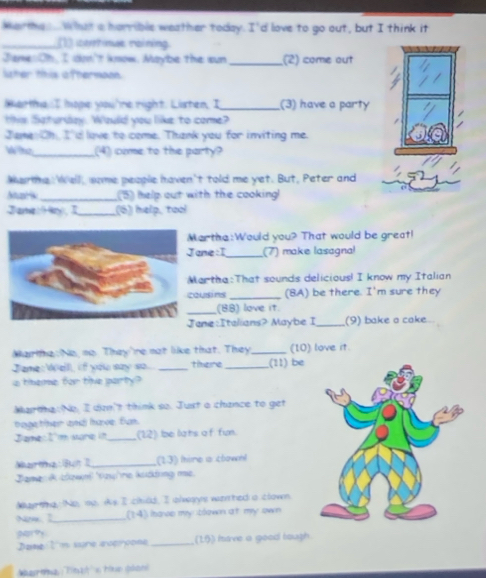 Martha:...What a horrible weather today. I'd love to go out, but I think it
________(1) continue raining.
Jane:Oh, I don't know. Maybe the sun ________(2) come out
later this afternoon.
Martha:I hope you're right. Listen, I________(3) have a party
this Saturday. Would you like to come?
Jane:Oh, I'd love to come. Thank you for inviting me.
Who________(4) come to the party?
Martha:Well, some people haven't told me yet. But, Peter and
Mark ________(5) help out with the cooking!
Jane:Hey, I_____(6) help, too!
Martha:Would you? That would be great!
Jane:I_____(7) make lasagna!
Martha:That sounds delicious! I know my Italian
cousins ________(8A) be there. I'm sure they
____(8B) love it.
Jane:Italians? Maybe I____(9) bake a cake...
Martha:No, no. They're not like that. They_____(10) love it.
Jane:Well, if you say so... ____ there ______(11) be
a theme for the party?
Martha:No, I don't think so. Just a chance to get
together and have fun.
Jane:I'm sure it____(12) be lots of fun.
Martha:But I_________(13) hire a clown!
Jane:A clown! You're kidding me.
Martha:No, no. As I child, I always wanted a clown.
Now, I__________(14) have my clown at my own
party.
Jane:I'm sure everyone ______(15) have a good laugh.
Martha:That's the plan!